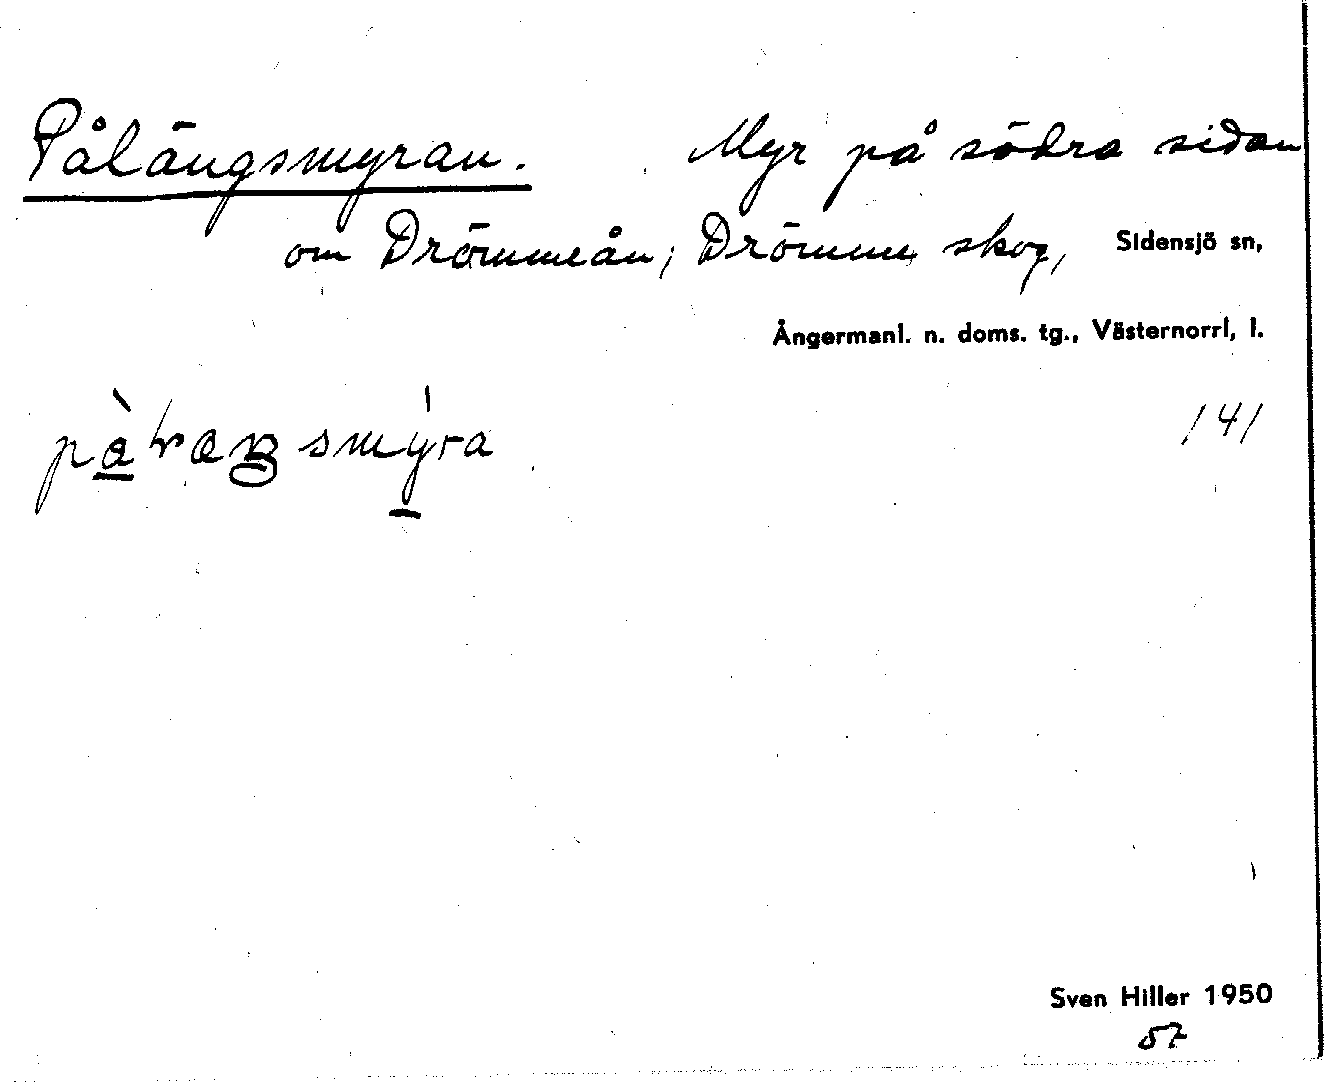 Pålängsmyran. Myr på södra sidan
om Drömmeån, Drömme skog, Sidensjö sn,
Ångermanl. n. doms. tg., Västernorrl, l.
141
Sven Hiller 1950
57